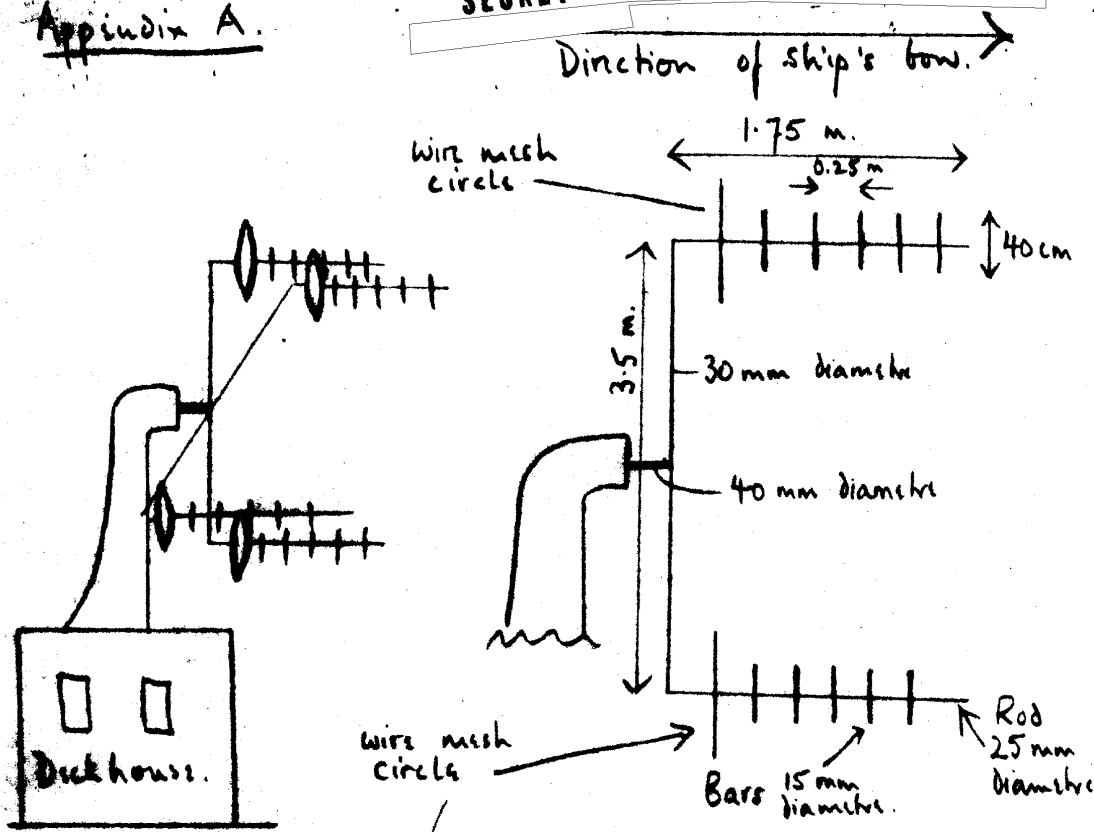 Appendix A.
Direction of ship's bow.
1.75 m.
wire mesh
circle
0.25 m
40cm
3.5 m.
30mm diametre
40 mm diametre
wire mesh
circle
Rod
25 mm
Diametre
Bars 15 mm
diametre.
Deckhouse.